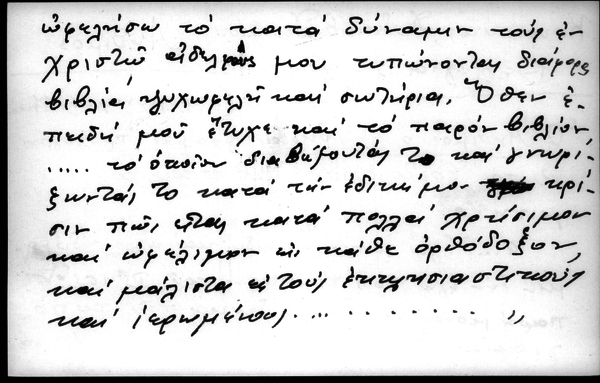 ὠφελήσω τό κατά δύναμιν τούς ἐν
Χριστῷ ἀδελφούς μου τυπώνοντας διάφορα
βιβλία ψυχωφελῆ καί σωτήρια. Ὅθεν ἐ-
πειδή μοῦ ἔτυχε καί τό παρόν βιβλίον
..... τό ὁποῖον διαβάζοντάς το καί γνωρί-
ζωντάς το κατά τήν ἐδικήμου κρί-
σιν πῶς εἶναι κατά πολλά χρήσιμον
καί ὠφέλιμον εἰς κάθε ὀρθόδοξον,
καί μάλιστα εἰς τούς ἐκκλησιαστικούς
καί ἱερωμένους ... ........ ,,